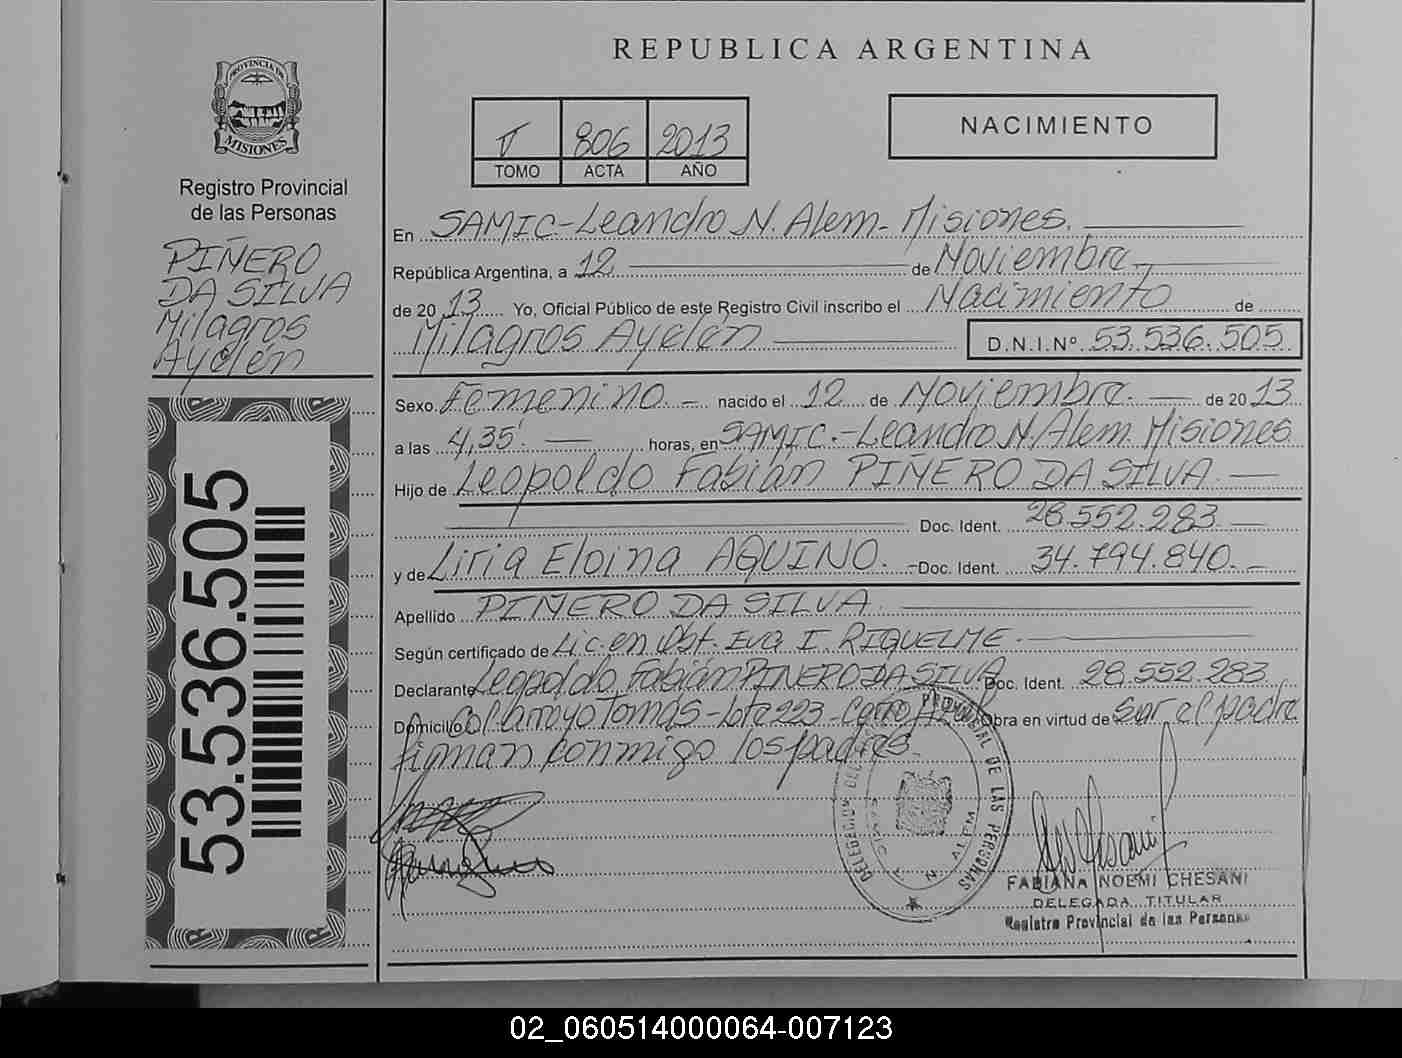 REPUBLICA ARGENTINA
PROVINCIA DE
MISIONES
Registro Provincial
de las Personas
PIÑERO
DA SILVA
Milagros
Ayelén
53.536.505
V 806 2013
TOMO ACTA AÑO
NACIMIENTO
En SAMIC-Leandro N. Alem- Misiones.
República Argentina, a 12 de Noviembre
de 2013 Yo, Oficial Público de este Registro Civil inscribo el Nacimiento de
Milagros Ayelén D.N.I.Nº 53.536.505
Sexo Femenino.- nacido el 12 de Noviembre. de 2013
a las 4,35'. horas, en SAMIC.-Leandro N. Alem. Misiones
Hijo de Leopoldo Fabián PIÑERO DA SILVA.
Doc. Ident. 28.552.283
y de Liria Eloina AQUINO. - Doc. Ident. 34.794.840.-
Apellido PIÑERO DA SILVA.
Según certificado de Lic. en Obst. Eva I. RIQUELME.
Declarante Leopoldo Fabián PIÑERO DA SILVA Doc. Ident. 28.552.283
Domicilio Col. arroyo Tomás-Lote 223-Cerro Azul Obra en virtud de Ser el padre
firman conmigo los padres.
DELEGACION DEL REG. PROVINCIAL DE LAS PERSONAS
SAMIC N. ALEM
FABIANA NOEMI CHESANI
DELEGADA TITULAR
Registro Provincial de las Personas
02_060514000064-007123